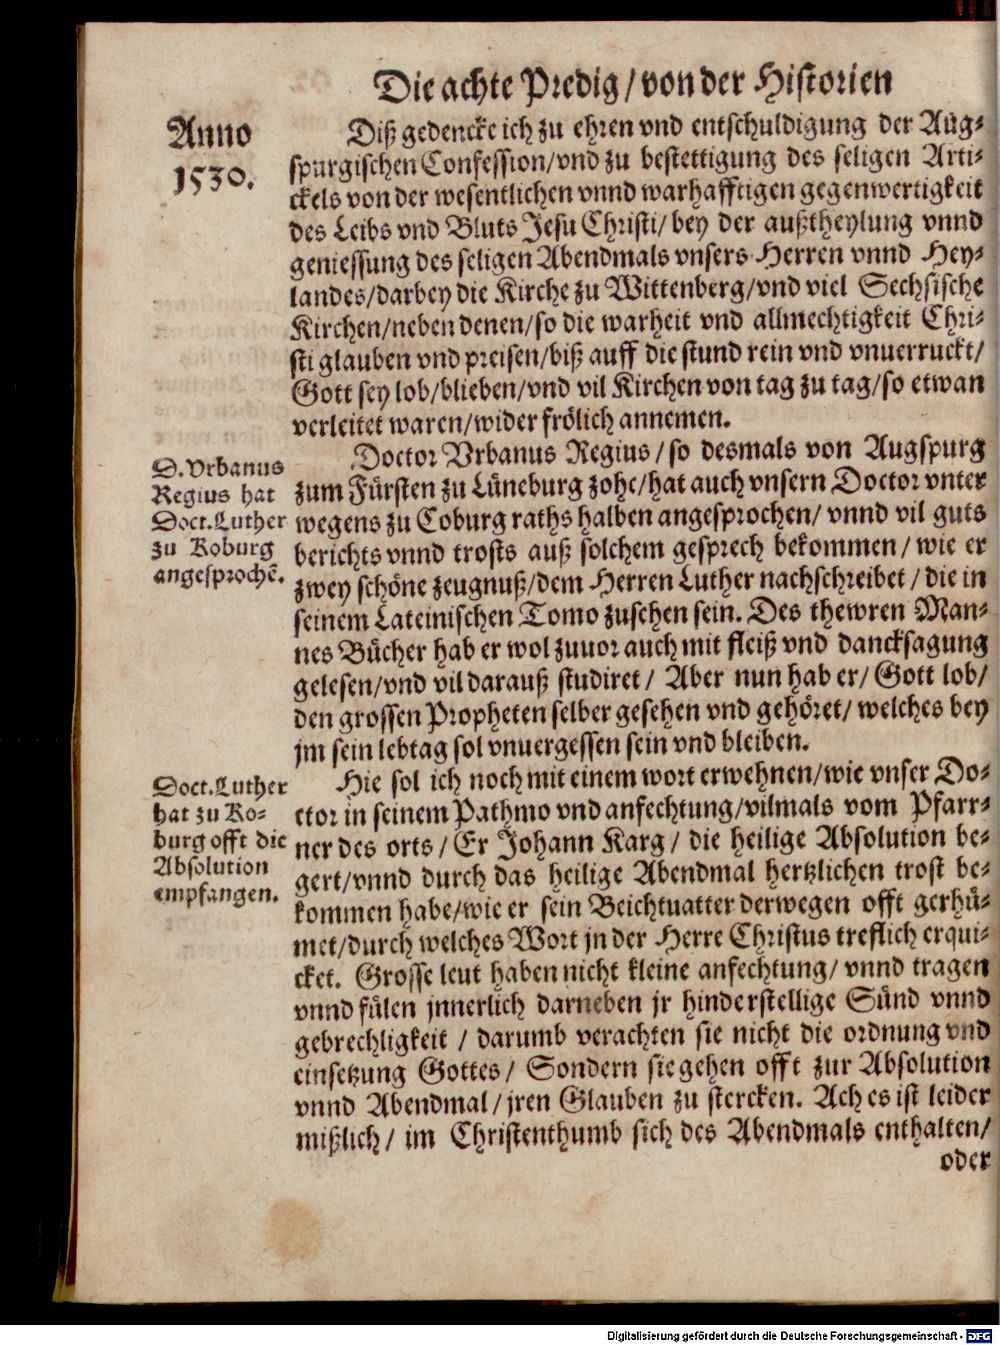 Die achte Predig / von der Historien
Anno
1530.
Diß gedencke ich zu ehren vnd entschuldigung der Aug-
spurgischen Confession/vnd zu bestettigung des seligen Arti-
ckels von der wesentlichen vnnd warhafftigen gegenwertigkeit
des Leibs vnd Bluts Jesu Christi/ bey der außtheylung vnnd
geniessung des seligen Abendmals vnsers Herren vnnd Hey-
landes/darbey die Kirche zu Wittenberg/vnd viel Sechsische
Kirchen/neben denen/so die warheit vnd allmechtigkeit Chri-
sti glauben vnd preisen/biß auff die stund rein vnd vnuerruckt/
Gott sey lob/blieben/vnd vil Kirchen von tag zu tag/so etwan
verleitet waren/wider frölich annemen.
D. Vrbanus
Regius hat
Doct. Luther
zu Koburg
angesprochẽ.
Doctor Vrbanus Regius/so desmals von Augspurg
zum Fürsten zu Lüneburg zohe/hat auch vnsern Doctor vnter
wegens zu Coburg raths halben angesprochen/ vnnd vil guts
berichts vnnd trosts auß solchem gesprech bekommen / wie er
zwey schöne zeugnuß/dem Herren Luther nachschreibet / die in
seinem Lateinischen Tomo zusehen sein. Des thewren Man-
nes Bücher hab er wol zuuor auch mit fleiß vnd dancksagung
gelesen/vnd vil darauß studiret / Aber nun hab er/ Gott lob/
den grossen Propheten selber gesehen vnd gehöret/ welches bey
jm sein lebtag sol vnuergessen sein vnd bleiben.
Doct. Luther
hat zu Ko-
burg offt die
Absolution
empfangen.
Hie sol ich noch mit einem wort erwehnen/wie vnser Do-
ctor in seinem Pathmo vnd anfechtung/vilmals vom Pfarr-
ner des orts / Er Johann Karg / die heilige Absolution be-
gert/vnnd durch das heilige Abendmal hertzlichen trost be-
kommen habe/wie er sein Beichtuatter derwegen offt gerhü-
met/durch welches Wort jn der Herre Christus treflich erqui-
cket. Grosse leut haben nicht kleine anfechtung/ vnnd tragen
vnnd fülen jnnerlich darneben jr hinderstellige Sünd vnnd
gebrechligkeit / darumb verachten sie nicht die ordnung vnd
einsetzung Gottes / Sondern sie gehen offt zur Absolution
vnnd Abendmal / jren Glauben zu stercken. Ach es ist leider
mißlich / im Christenthumb sich des Abendmals enthalten/
oder
Digitalisierung gefördert durch die Deutsche Forschungsgemeinschaft - DFG